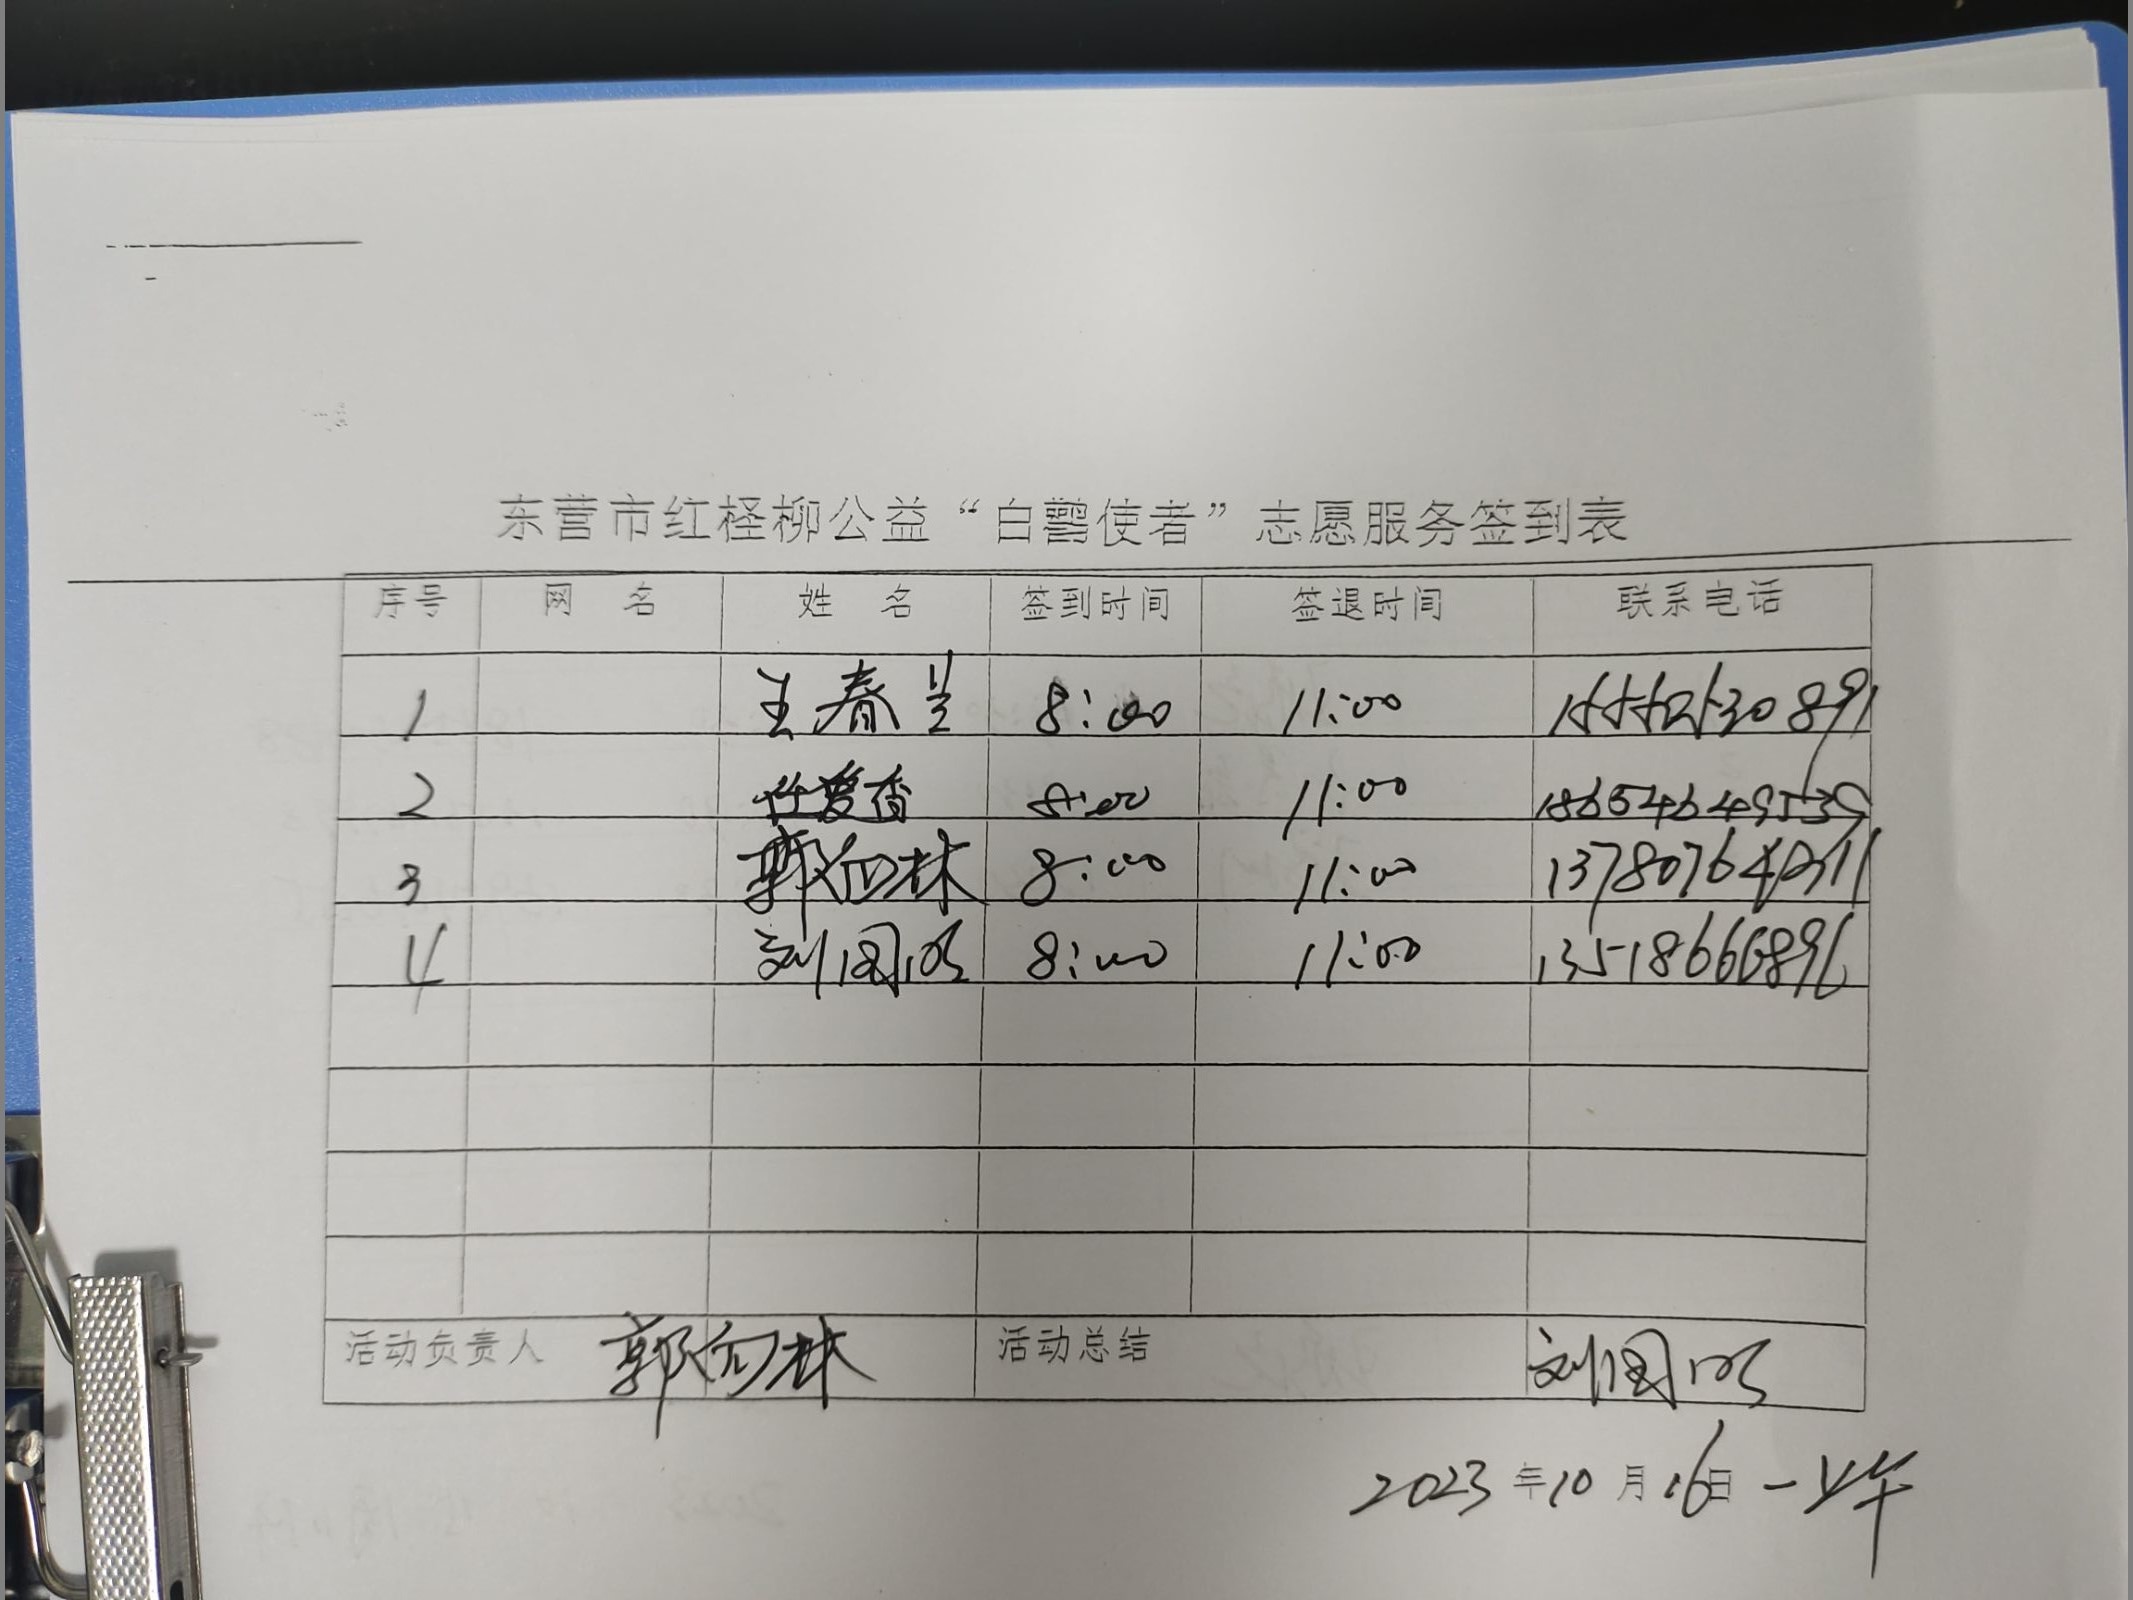 东营市红柽柳公益“白鹳使者”志愿服务签到表
序号 网 名 姓 名 签到时间 签退时间 联系电话
1 王春兰 8:00 11:00 15552530891
2 任爱香 8:00 11:00 18654649539
3 郭向林 8:00 11:00 13780764211
4 刘国明 8:00 11:00 13518666896
活动负责人 郭向林 活动总结 刘国明
2023年10月16日-上午